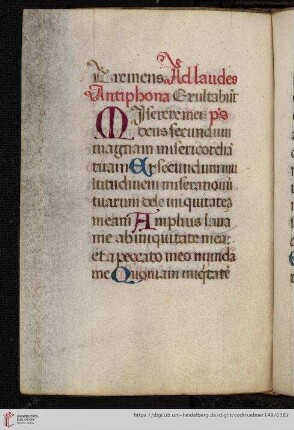 Premens Ad laudes
Antiphona Exultabūt
Miserere mei ps
deus secundum
magnam misericordiā
tuam Et secundum mul
titudinem miserationū
tuarum dele iniquitatē
meam Amplius laua
me ab iniquitate mea:
et a peccato meo munda
me Quoniam iniq̄tatē
https://digi.ub.uni-heidelberg.de/diglit/
UNIVERSITÄTS-
BIBLIOTHEK
HEIDELBERG